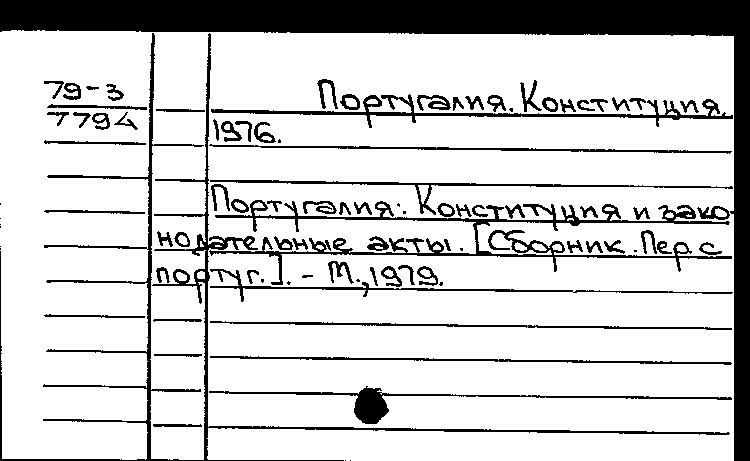 79-3
7794
Португалия. Конституция.
1976.
Португалия: Конституция и зако-
нодательные акты. [Сборник. Пер. с
португ.]. - М., 1979.